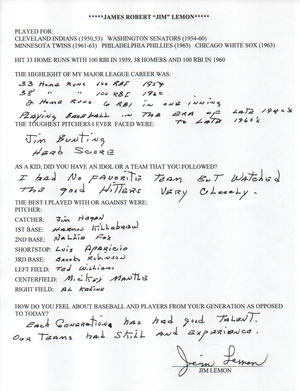 *****JAMES ROBERT "JIM" LEMON*****
PLAYED FOR:
CLEVELAND INDIANS (1950,53) WASHINGTON SENATORS (1954-60)
MINNESOTA TWINS (1961-63) PHILADELPHIA PHILLIES (1963) CHICAGO WHITE SOX (1963)
HIT 33 HOME RUNS WITH 100 RBI IN 1959, 38 HOMERS AND 100 RBI IN 1960
THE HIGHLIGHT OF MY MAJOR LEAGUE CAREER WAS:
33 HOME RUNS 100 RBI 1959
38 " " 100 RBI 1960
2 HOME RUNS 6 RBI IN ONE INNING
PLAYING BASEBALL IN THE ERA OF LATE 1940's
TO LATE 1960's
THE TOUGHEST PITCHERS I EVER FACED WERE:
Jim Bunting
Herb Score
AS A KID, DID YOU HAVE AN IDOL OR A TEAM THAT YOU FOLLOWED?
I had No FAVORITE TEAM BUT WATCHED
The good HITTERS VERY CLOSELY.
THE BEST I PLAYED WITH OR AGAINST WERE:
PITCHER:
CATCHER: Jim Hegan
1ST BASE: Harmon Killebrew
2ND BASE: Nellie Fox
SHORTSTOP: Luis Aparicio
3RD BASE: Brooks Robinson
LEFT FIELD: Ted Williams
CENTERFIELD: Mickey Mantle
RIGHT FIELD: Al Kaline
HOW DO YOU FEEL ABOUT BASEBALL AND PLAYERS FROM YOUR GENERATION AS OPPOSED
TO TODAY?
Each Generation has had good Talent.
Our Teams had Skill and Experience.
Jim Lemon
JIM LEMON